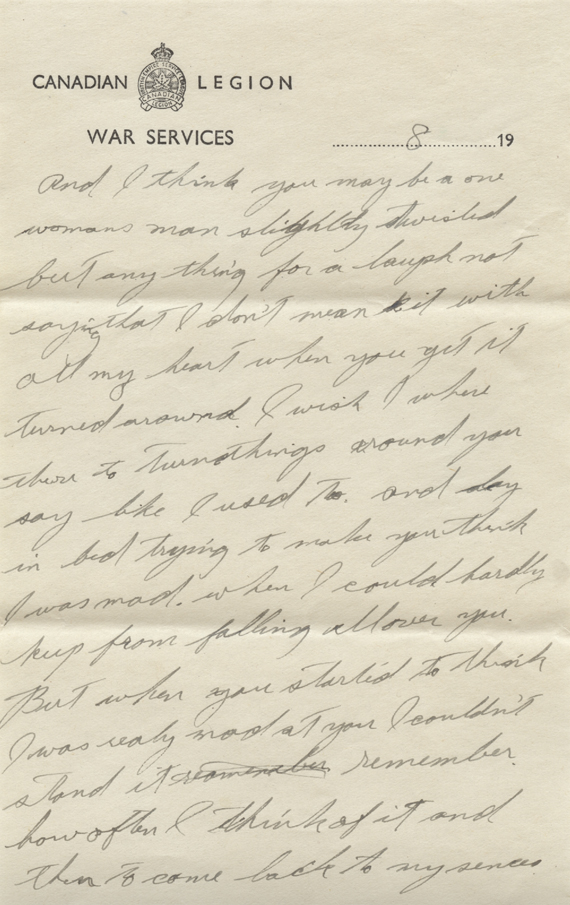 CANADIAN LEGION
WAR SERVICES
8 19
And I think you may be a one
womans man slightly twisted
but any thing for a laugh not
saying that I don't mean it with
all my heart when you get it
turned around. I wish I where
there to turn things around you
say like I used to. and lay
in bed trying to make you think
I was mad. when I could hardly
keep from falling all over you.
But when you started to think
I was realy mad at you I couldn't
stand it remember remember.
how often I think of it and
then to come back to my sences